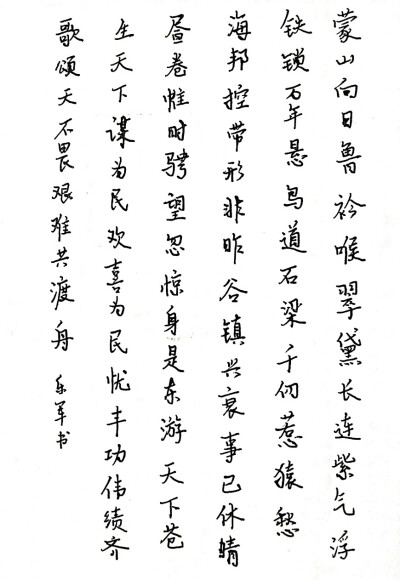 蒙山向日鲁衿喉翠黛长连紫气浮
铁锁万年悬鸟道石梁千仞惹猿愁
海邦控带形非昨谷镇兴衰事已休晴
昼卷帷时骋望忽惊身是东游天下苍
生天下谋为民欢喜为民忧丰功伟绩齐
歌颂天不畏艰难共渡舟
乐军书